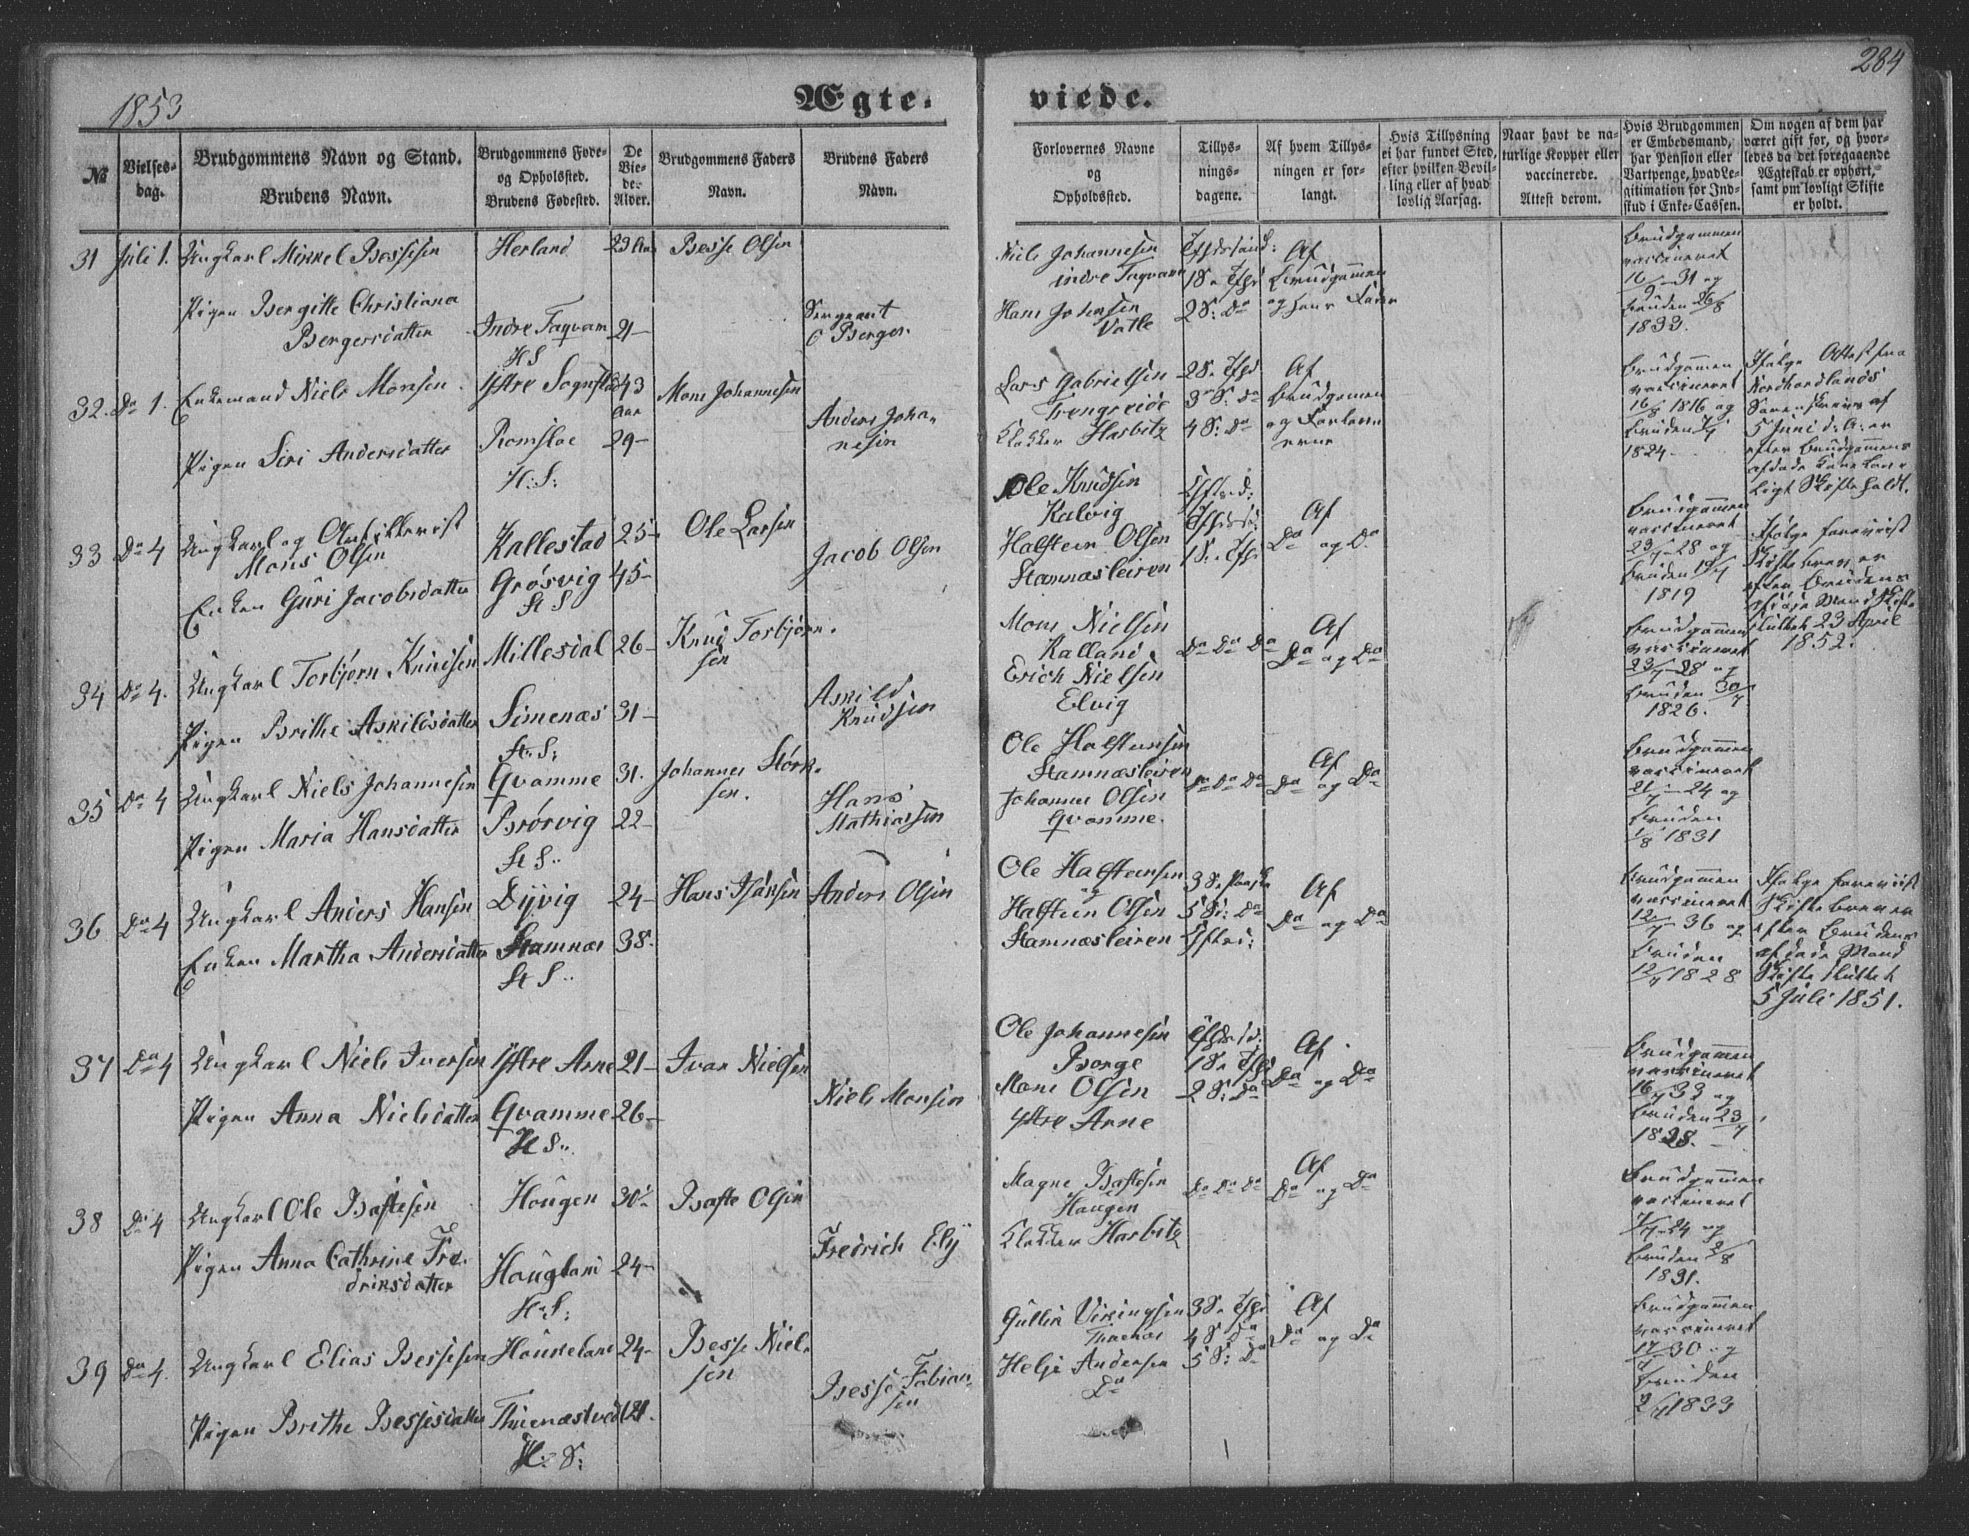 1853
Ægte-
viede.
284
No
Vielses-
dag.
Brudgommens Navn og Stand.
Brudens Navn.
Brudgommens Føde-
og Opholdssted.
Brudens Fødested.
De
Vie-
de-
Alder.
Brudgommens Faders
Navn.
Brudens Faders
Navn.
Forlovernes Navne
og
Opholdssted.
Tillys-
nings-
dagene.
Af hvem Tillys-
ningen er for-
langt.
Hvis Tillysning
ei har fundet Sted,
efter hvilken Bevil-
ling eller af hvad
lovlig Aarsag.
Naar havt de na-
turlige Kopper eller
vaccinerede.
Attest derom.
Hvis Brudgommen
er Embedsmand,
har Pension eller
Vartpenge, hvad Le-
gitimation for Ind-
skud i Enke-Cassen.
Om nogen af dem har
været gift før, og hvor-
ledes da det foregaaende
Ægteskab er ophørt,
samt om lovligt Skifte
er holdt.
31 Juli 1. Ungkarl Mikkel Bessesen Herland 29 Aar Besse Olsen
Pigen Bergitte Christiana
Bergersdatter Indre Taqvam 21 Sergeant
O Berger
H S
Niels Johannesen
indre Taqvam
Hans Johnsen
Vatle
Af
Brudgommen
og hans Fader
Brudgommen
vaccineret
16/9 31 og
Bruden 26/8
1833.
32. Do 1. Enkemand Niels Monsen Ystre Sognstad 43 Aar Mons Johannesen
Pigen Siri Andersdatter Romsloe 29 Anders Joha-
nesen
H: S:
Lars Gabrielsen
Trengereide
Klokker Harbitz
3 S. do
4 S: Do
Af
Brudgommen
og Forlover
Brudgommen
vaccineret
16/8 1816 og
Bruden
1824
Ifølge Attest fra
Nordhordlands
Sorenskriver af
5 Juni d: A: er
efter Brudgommens
afdøde Kone Lov-
ligt Skifte holdt.
33 Do 4 Ungkarl og
Mons Olsen Kallestad 25 Ole Larsen
Enken Guri Jacobsdatter Grøsvig 45 Jacob Olsen
St S
Ole Knudsen
Kalvig
Halsteen Olsen
Stamnæsleiren
Af
Do og Do
Brudgommen
vaccineret
23/7 28 og
Bruden 19/7
1819
Ifølge foreviist
Skiftebrev er
efter Brudens
afdøde Mand Skifte
sluttet 23 April
1852.
34 Do 4. Ungkarl Torbjørn Knudsen Millesdal 26 Knud Torbjørn-
sen
Pigen Brithe Askildsdatter Simenæs 31 Askild
Knudsen
St: S:
Mons Nielsen
Kalland
Erich Nielsen
Elvig
Do Do Do
Af
Do og Do
Brudgommen
vaccineret
23/7 28 og
Bruden 30/7
1826.
35 Do 4 Ungkarl Niels Johannesen Qvamme 31. Johannes Størk-
sen.
Pigen Maria Hansdatter Brørvig 22 Hans
Mathiassen
St S
Ole Halsteensen
Stamnæsleiren
Johannes Olsen
Qvamme.
Do Do Do
Af
Do og Do
Brudgommen
vaccineret
21/7 24 og
Bruden
1/8 1831
36 Do 4 Ungkarl Anders Hansen Dyvig 24 Hans Anders Olsen
Enken Martha Andersdatter Stamnæs 38.
St S
Ole Halsteensen
og
Halsteen Olsen
Stamnæsleiren
5 S: Do
Af
Do og Do
Brudgommen
vaccineret
12/7 36 og
Bruden
12/7 1828
Ifølge foreviist
Skiftebrev er
efter Brudens
afdøde Mand
Skifte sluttet
5 Juli 1851.
37 Do 4 Ungkarl Niels Iversen Ystre Arne 21 Ivar Nielsen
Pigen Anna Nielsdatter Qvamme 26 Niels Monsen
H S
Ole Johannesen
Borge
Mons Olsen
Ystre Arne
2 S: Do
Af
Do og Do
Brudgommen
vaccineret
16/7 33 og
Bruden 23/7
1828.
38 Do 4 Ungkarl Ole Baftesen Hougen 30½ Bafte Olsen
Pigen Anna Cathrine Fre-
driksdatter Hougland 24 Fredrich Ely
H: S:
Magne Baftesen
Haugen
Klokker Harbitz
Do Do Do
Af
Do og Do
Brudgommen
vaccineret
7/7 24 og
Bruden 2/8
1831.
39 Do 4. Ungkarl Elias Bessesen Houkeland 24 Besse Niel-
sen
Pigen Brithe Bessesdatter Thuenæstvedt 21. Besse Fabian-
sen
H: S:
Gullik Vikingsen
Thuenæs
Helje Andersen
Do
4 S Do
5 S: Do
Af
Do og Do
Brudgommen
vaccineret
17/7 30 og
Bruden
2/7 1833